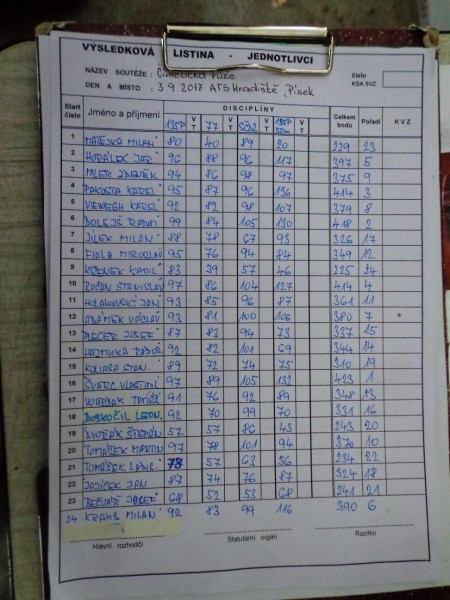 VÝSLEDKOVÁ LISTINA - JEDNOTLIVCI
NÁZEV SOUTĚŽE: Čimelická růže číslo
DEN A MÍSTO: 3.9.2017 ATS Hradiště, Písek KSA SVZ
Start číslo Jméno a příjmení DISCIPLÍNY Celkem bodů Pořadí KVZ
135P VT 77 VT VT 135P 50m VT
1 MATEJKA MILAN 80 40 89 20 229 23
2 HORÁLEK JAR 96 88 96 117 397 5
3 ZDENĚK 94 86 98 97 375 9
4 PAKOSTA KAREL 95 87 96 136 414 3
5 VIEWEGH KAREL 92 82 98 107 379 8
6 DOLEJŠ RADIM 99 84 105 130 418 2
7 JÍLEK MILAN 88 78 67 93 326 17
8 FIALA MIROSLAV 95 76 94 84 349 12
9 KŘENEK KAMIL 83 39 57 46 225 24
10 ROČAN STANISLAV 97 86 104 127 414 4
11 HOLAKOVSKÝ JAN 93 85 96 87 361 11
12 ADÁMEK VÁCLAV 93 81 100 106 380 7
13 PLECER JOSEF 87 83 94 73 337 15
14 HAJMUKA 92 82 101 69 344 14
15 STAN. 89 72 74 75 310 19
16 ŠVARC VLASTIMIL 97 89 105 132 423 1
17 TOMÁŠ 91 76 92 89 348 13
18 DOSKOČIL LEON. 92 70 99 70 331 16
19 DVOŘÁK ŠTĚPÁN 57 57 86 43 243 20
20 TOMÁŠEK MARTIN 97 78 101 94 370 10
21 TOMÁŠEK LADIS. 78 57 63 36 234 22
22 JAN 87 74 76 87 324 18
23 BEČVÁŘ JOSEF 68 52 53 68 241 21
24 KRAUS MILAN 92 83 99 116 390 6
Hlavní rozhodčí Statutární orgán Razítko